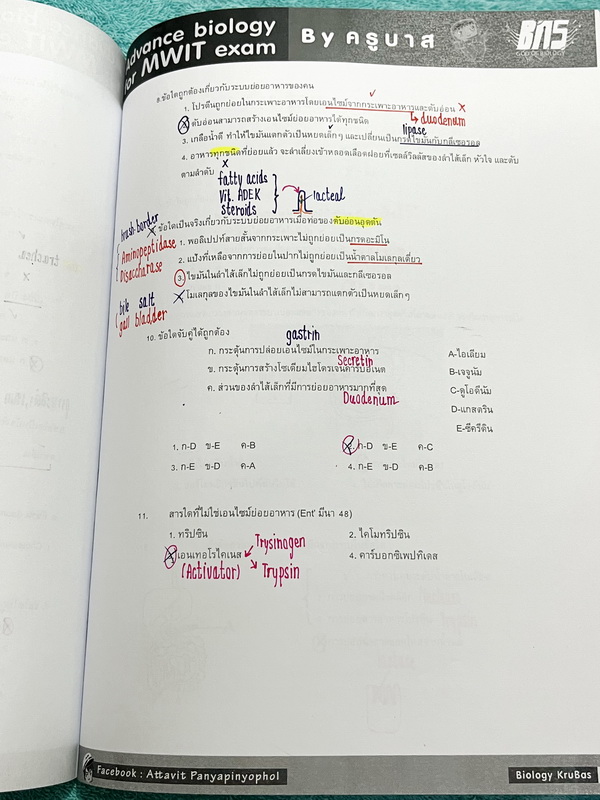 Advance biology
for MWIT exam
By ครูบาส
BAS
GOD OF BIOLOGY
8.ข้อใดถูกต้องเกี่ยวกับระบบย่อยอาหารของคน
1. โปรตีนถูกย่อยในกระเพาะอาหารโดยเอนไซม์จากกระเพาะอาหารและตับอ่อน
duodenum
ตับอ่อนสามารถสร้างเอนไซม์ย่อยอาหารได้ทุกชนิด
lipase
3. เกลือน้ำดี ทำให้ไขมันแตกตัวเป็นหยดเล็กๆ และเปลี่ยนเป็นกรดไขมันกับกลีเซอรอล
4. อาหารทุกชนิดที่ย่อยแล้ว จะลำเลียงเข้าหลอดเลือดฝอยที่เซลล์วิลลัสของลำไส้เล็ก หัวใจ และตับ
ตามลำดับ
fatty acids
Vit. ADEK
steroids
lacteal
brush-border
ข้อใดเป็นจริงเกี่ยวกับระบบย่อยอาหารเมื่อท่อของตับอ่อนอุดตัน
Aminopeptidase
1. พอลิเปปไทด์สายสั้นจากกระเพาะไม่ถูกย่อยเป็นกรดอะมิโน
Disaccharase
2. แป้งที่เหลือจากการย่อยในปากไม่ถูกย่อยเป็นน้ำตาลโมเลกุลเดี่ยว
3. ไขมันในลำไส้เล็กไม่ถูกย่อยเป็นกรดไขมันและกลีเซอรอล
bile salt
โมเลกุลของไขมันในลำไส้เล็กไม่สามารถแตกตัวเป็นหยดเล็กๆ
gall bladder
10. ข้อใดจับคู่ได้ถูกต้อง
gastrin
ก. กระตุ้นการปล่อยเอนไซม์ในกระเพาะอาหาร
A-ไอเลียม
Secretin
ข. กระตุ้นการสร้างโซเดียมไฮโดรเจนคาร์บอเนต
B-เจจูนัม
ค. ส่วนของลำไส้เล็กที่มีการย่อยอาหารมากที่สุด
C-ดูโอดีนัม
Duodenum
D-แกสตริน
E-ซีครีติน
1. ก-D ข-E ค-B
2. ก-D ข-E ค-C
3. ก-E ข-D ค-A
4. ก-E ข-D ค-B
11. สารใดที่ไม่ใช่เอนไซม์ย่อยอาหาร (Ent' มีนา 48)
1. ทริปซิน
2. ไคโมทริปซิน
Trysinogen
เอนเทอโรไคเนส
4. คาร์บอกซิเพปทิเดส
(Activator)
Trypsin
Facebook : Attavit Panyapinyophol
Biology KruBas